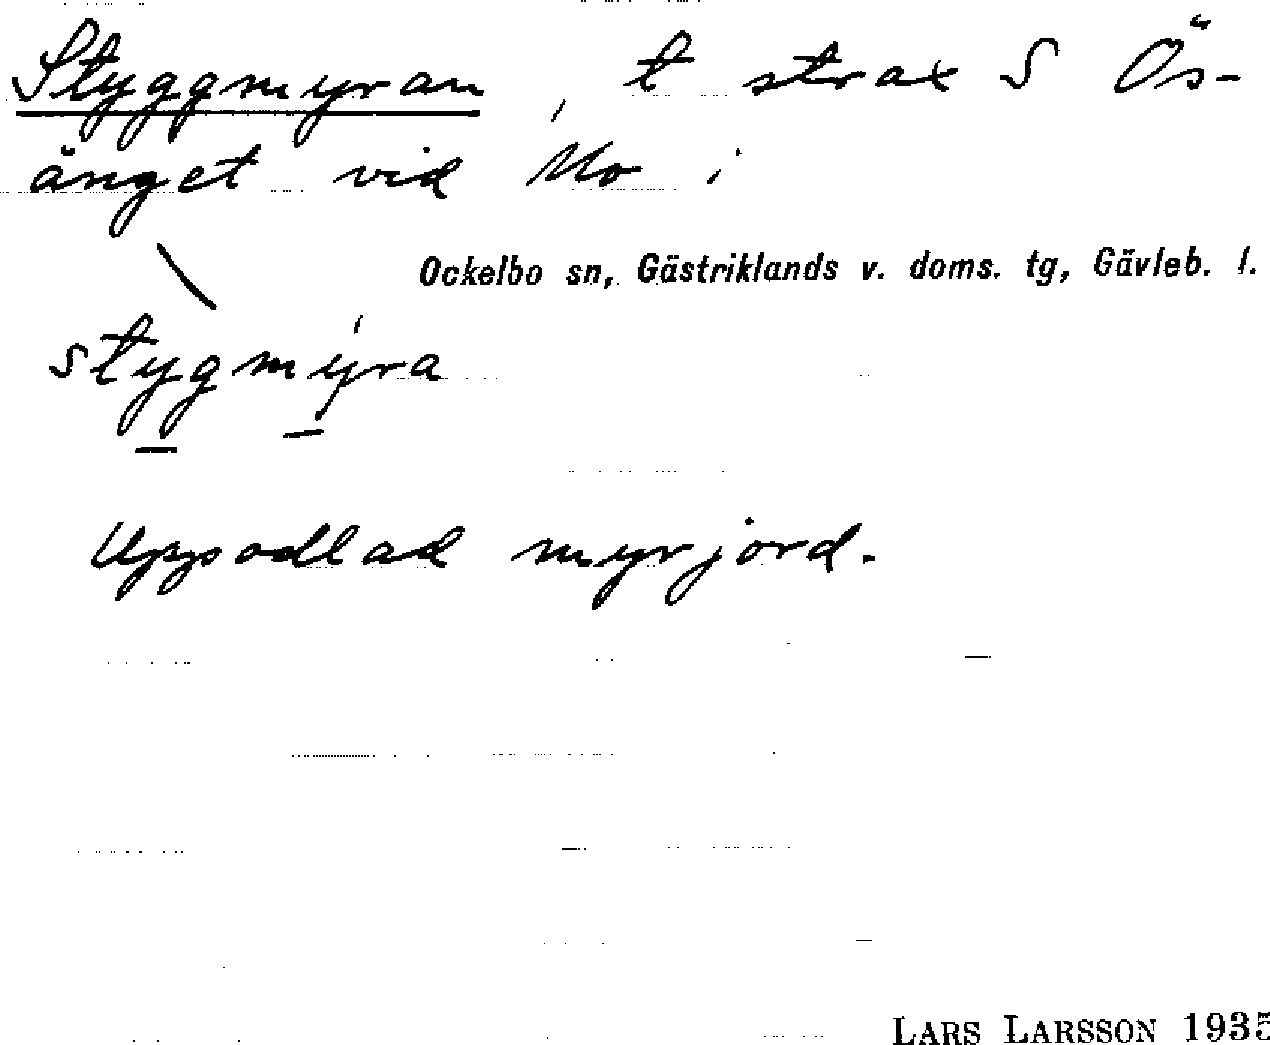 Styggmyran, t strax S Ös-
änget vid Mo i
Ockelbo sn, Gästriklands v. doms. tg, Gävleb. l.
\ stygmýra
Uppodlad myrjord.
LARS LARSSON 1935